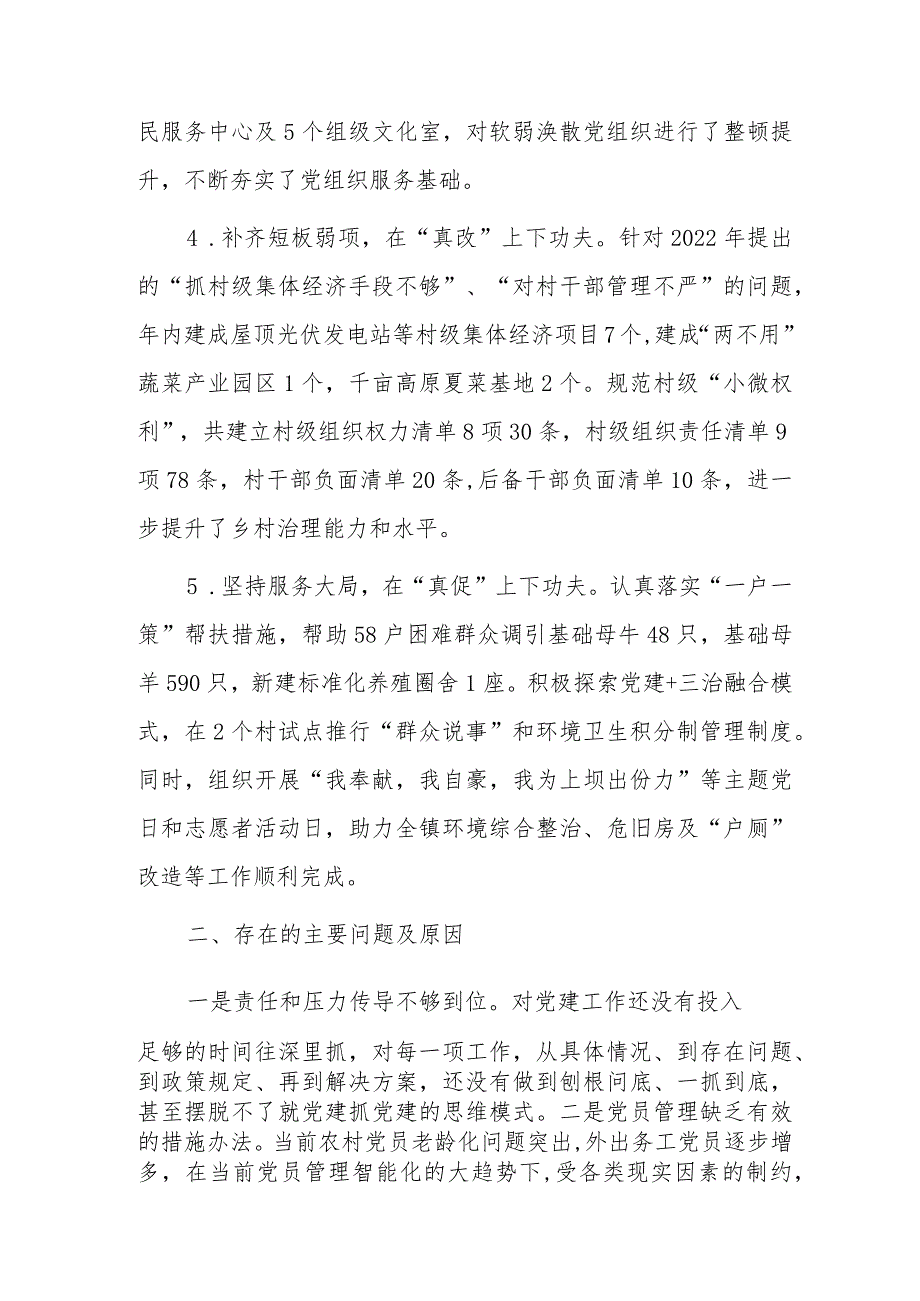 民服务中心及5个组级文化室，对软弱涣散党组织进行了整顿提
升，不断夯实了党组织服务基础。
4.补齐短板弱项，在“真改”上下功夫。针对2022年提出
的“抓村级集体经济手段不够”、“对村干部管理不严”的问题，
年内建成屋顶光伏发电站等村级集体经济项目7个,建成“两不用”
蔬菜产业园区1个，千亩高原夏菜基地2个。规范村级“小微权
利”，共建立村级组织权力清单8项30条，村级组织责任清单9
项78条，村干部负面清单20条,后备干部负面清单10条，进一
步提升了乡村治理能力和水平。
5.坚持服务大局，在“真促”上下功夫。认真落实“一户一
策”帮扶措施，帮助58户困难群众调引基础母牛48只，基础母
羊590只，新建标准化养殖圈舍1座。积极探索党建+三治融合模
式，在2个村试点推行“群众说事”和环境卫生积分制管理制度。
同时，组织开展“我奉献，我自豪，我为上坝出份力”等主题党
日和志愿者活动日，助力全镇环境综合整治、危旧房及“户厕”
改造等工作顺利完成。
二、存在的主要问题及原因
一是责任和压力传导不够到位。对党建工作还没有投入
足够的时间往深里抓，对每一项工作，从具体情况、到存在问题、
到政策规定、再到解决方案，还没有做到刨根问底、一抓到底，
甚至摆脱不了就党建抓党建的思维模式。二是党员管理缺乏有效
的措施办法。当前农村党员老龄化问题突出,外出务工党员逐步增
多，在当前党员管理智能化的大趋势下,受各类现实因素的制约,